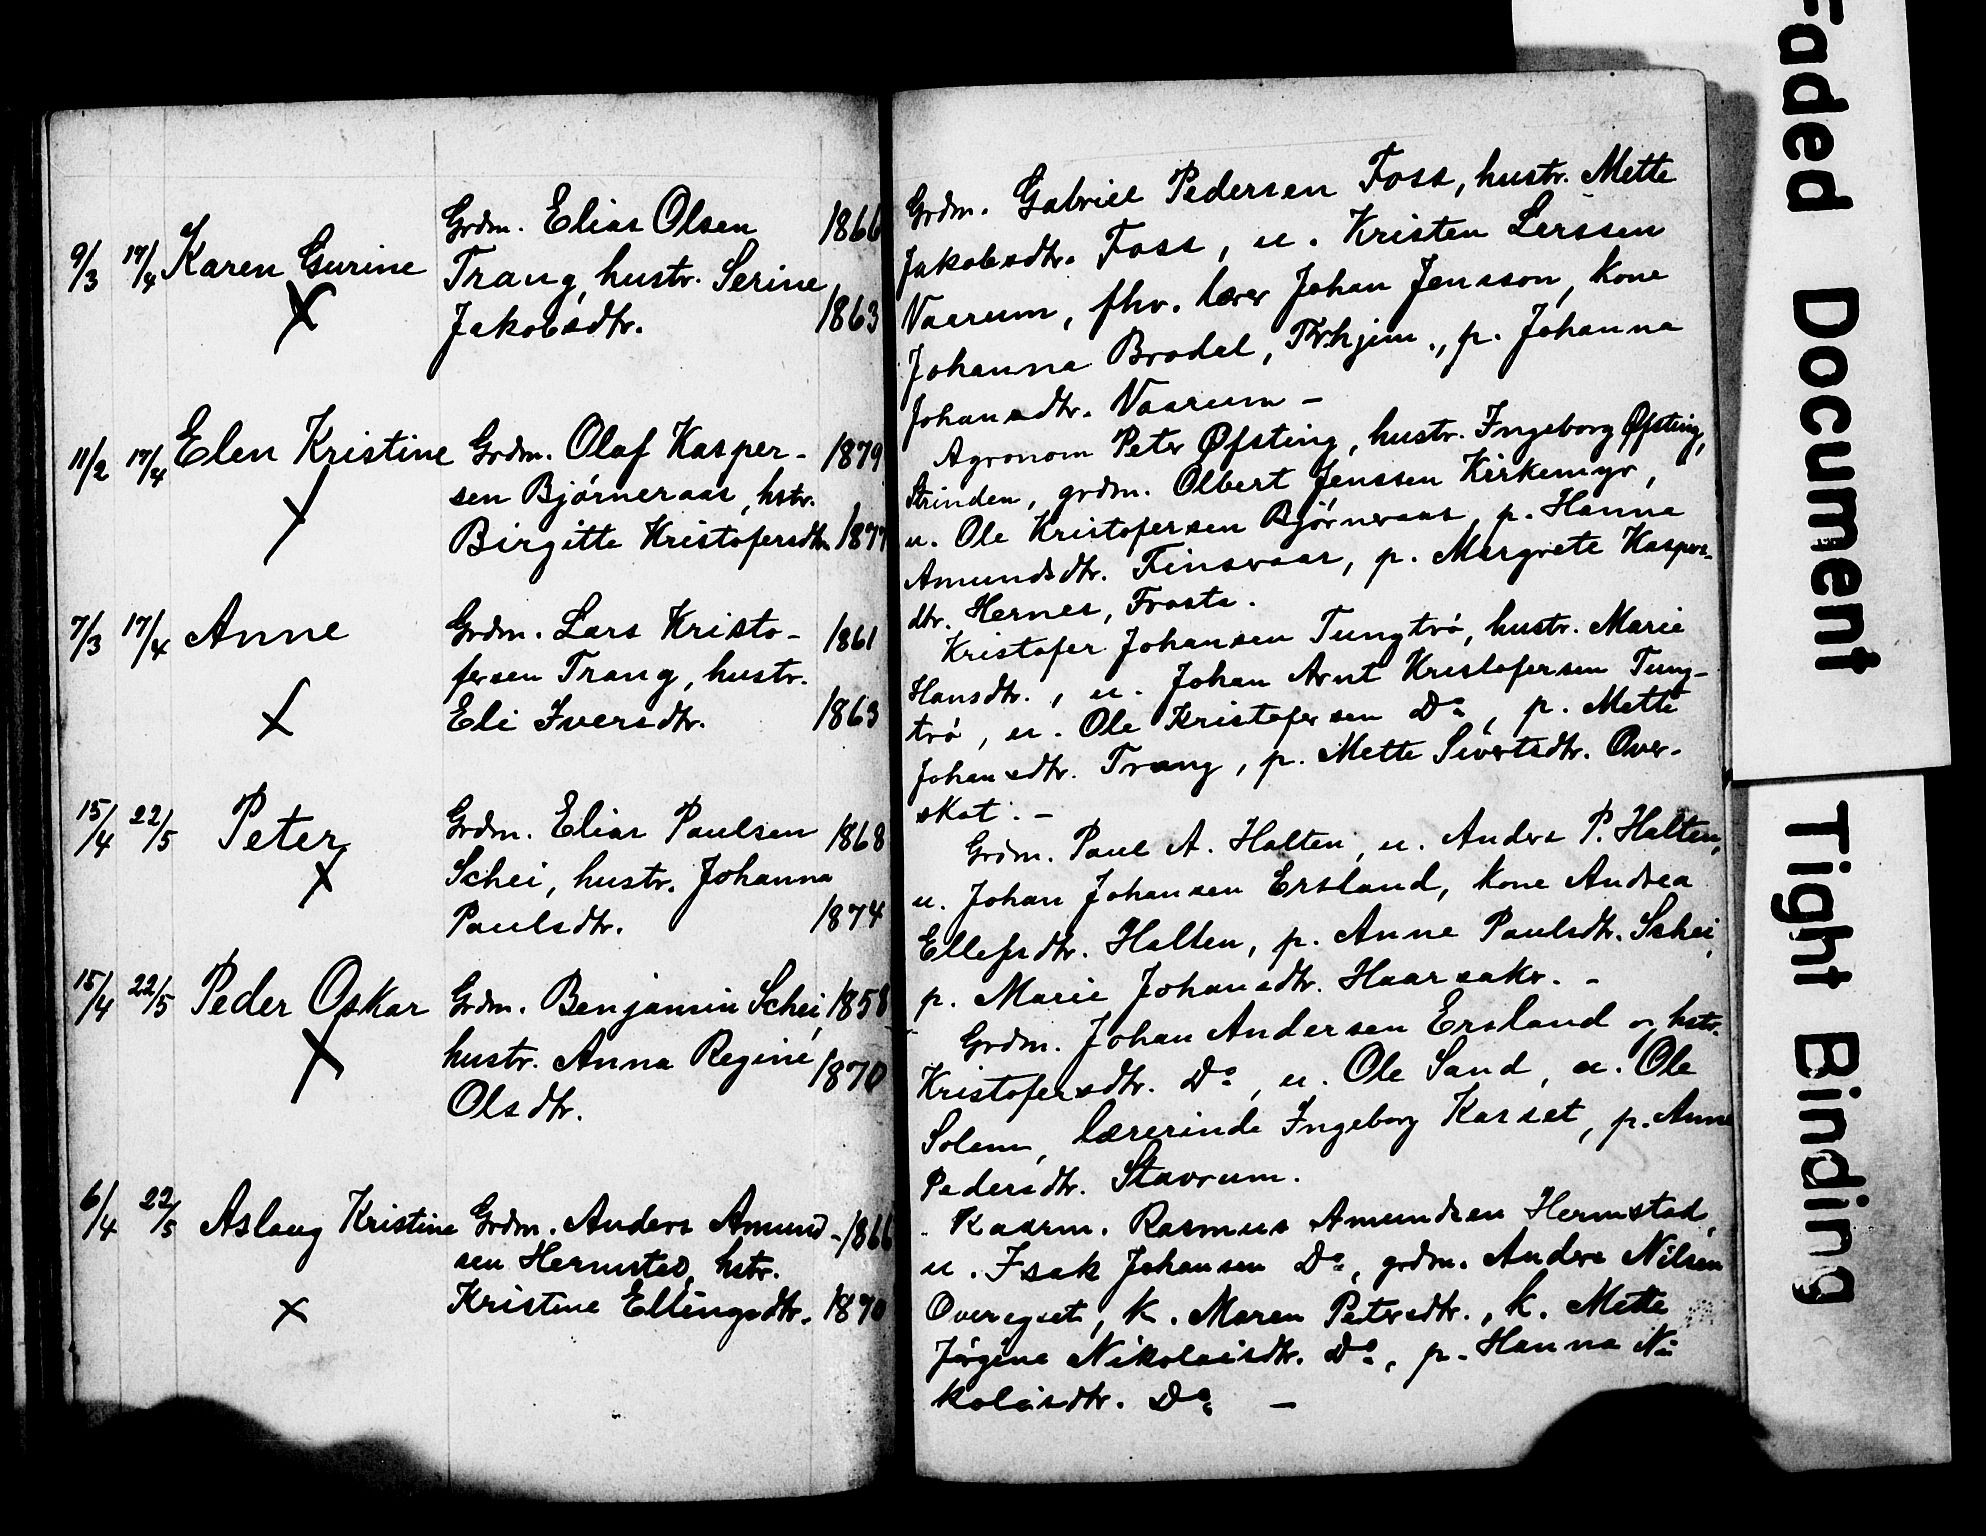 9/3 17/4 Karen Gurine
Grdm. Elias Olsen 1866
Trang, hustr. Serine
Jakobsdtr. 1863
11/2 17/4 Elen Kristine
Grdm. Olaf Kasper- 1879
sen Bjørneraas, hstr.
Birgitte Kristofersdtr. 1877
7/3 17/4 Anne
Grdm. Lars Kristo- 1861
fersen Trang, hustr.
Eli Iversdtr. 1863
15/4 22/5 Peter
Grdm. Elias Paulsen 1868
Schei, hustr. Johanna
Paulsdtr. 1874
15/4 22/5 Peder Oskar
Grdm. Benjamin Schei, 1858
hustr. Anna Regine 1870
Olsdtr.
6/4 22/5 Aslaug Kristine
Grdm. Anders Amund- 1866
sen Hermstad, hstr.
Kristine Ellingsdtr. 1870
Grdm. Gabriel Pedersen Foss, hustr. Mette
Jakobsdtr. Foss, u. Kristen Lerssen
Vaarum, fhv. lærer Johan Jensson, kone
Johanna Bradal, Trhjem., p. Johanna
Johansdtr. Vaarum –
Agronom Peter Øfsting, hustr. Ingeborg Øfsting,
Strinden, grdm. Olbert Jenssen Kirkemyr,
u. Ole Kristofersen Bjørneraas, p. Hanna
Amundsdtr. Finsvaar, p. Margrete Kaspers-
dtr. Hernes, Frosta.
Kristofer Johansen Tungtrø, hustr. Marie
Hansdtr., u. Johan Arnt Kristofersen Tung-
trø, u. Ole Kristofersen Do, p. Mette
Johansdtr. Trang, p. Mette Sivertsdtr. Over-
skot. –
Grdm. Paul A. Halten, u. Anders P. Halten,
u. Johan Johansen Ersland, kone Andrea
Ellefsdtr. Halten, p. Anne Paulsdtr. Schei,
p. Marie Johansdtr. Haarsaker. –
Grdm. Johan Andersen Ersland og hstr.
Kristofersdtr. Do, u. Ole Sand, u. Ole
Solem, lærerinde Ingeborg Karset, p. Anne
Pedersdtr. Stavrum.
Kaarm. Rasmus Amundsen Hermstad,
u. Isak Johansen Do, grdm. Andrs Nilsen
Overegset, k. Maren Petersdtr., k. Mette
Jørgine Nikolaisdtr. Do, p. Hanna Ni-
kolaisdtr. Do –
Faded Document
Tight Binding